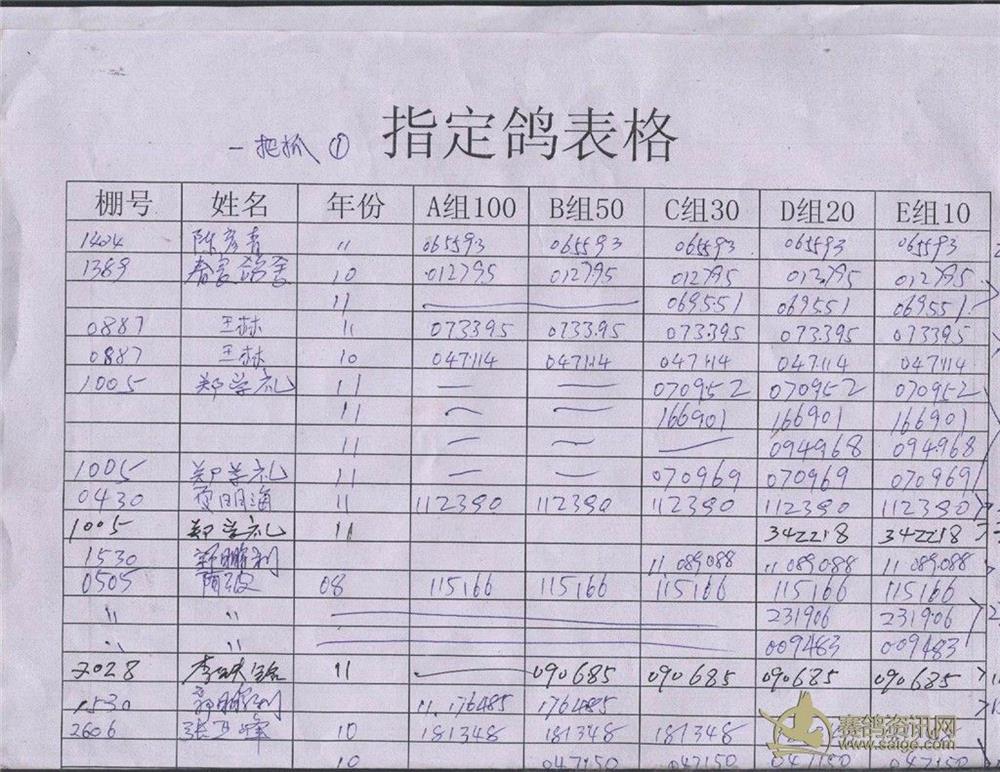 指定鸽表格
一把抓 ①
棚号 姓名 年份 A组100 B组50 C组30 D组20 E组10
1404 11 065593 065593 065593 065593 065593
1389 10 012795 012795 012795 012795 012795
11 — 069551 069551 069551
0887 王林 11 073395 073395 073395 073395 073395
0887 王林 10 047114 047114 047114 047114 047114
1005 郑学礼 11 — — 070952 070952 070952
11 — — 166901 166901 166901
11 — — — 094968 094968
1005 郑学礼 11 — — 070969 070969 070969
0430 11 112390 112390 112390 112390 112390
1005 郑学礼 11 342218 342218
1530 11 089088 11 089088 11 089088
0505 08 115166 115166 115166 115166 115166
〃 〃 — 231906 231906
〃 〃 — 009483 009483
2028 11 — 090685 090685 090685 090685
1530 11.176485 176485
2606 10 181348 181348 181348
10 047150 047150 047150 047150
赛鸽资讯网
www.saige.com